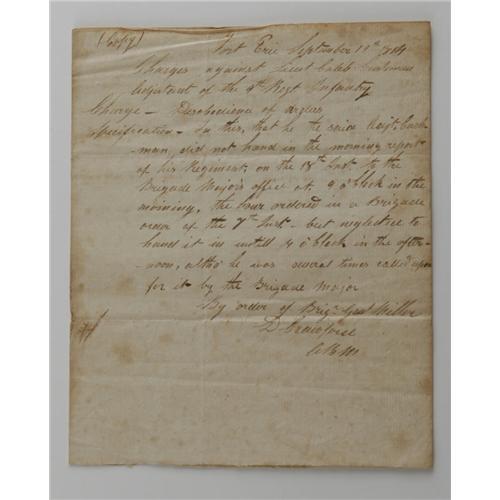 (Copy)
Fort Erie September 11th 1814
Charges against Lieut Caleb
Adjutant of the 4th Regt Infantry
Charge - Disobedience of orders
Specification - In this, that he the said Adjt. Cush-
-man, did not hand in the morning report
of his Regiment, on the 18th Inst. to the
Brigade Major's office at 9 o'clock in the
morning, the hour ordered in a Brigade
order of the 7th Inst - but neglected to
hand it in untill 4 o'clock in the after-
-noon, altho' he was several times called upon
for it by the Brigade Major
By order of Brigr Genl Miller
D Crawford